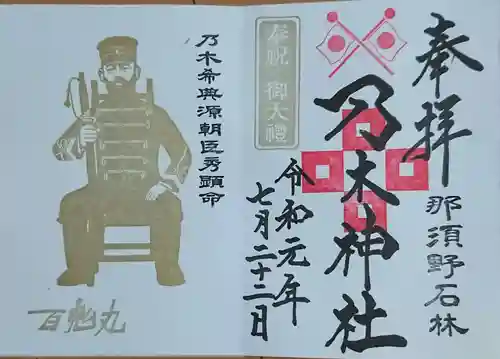 奉拝
那須野石林
乃木神社
令和元年
七月二十二日
奉祝 御大禮
乃木希典源朝臣秀顕命